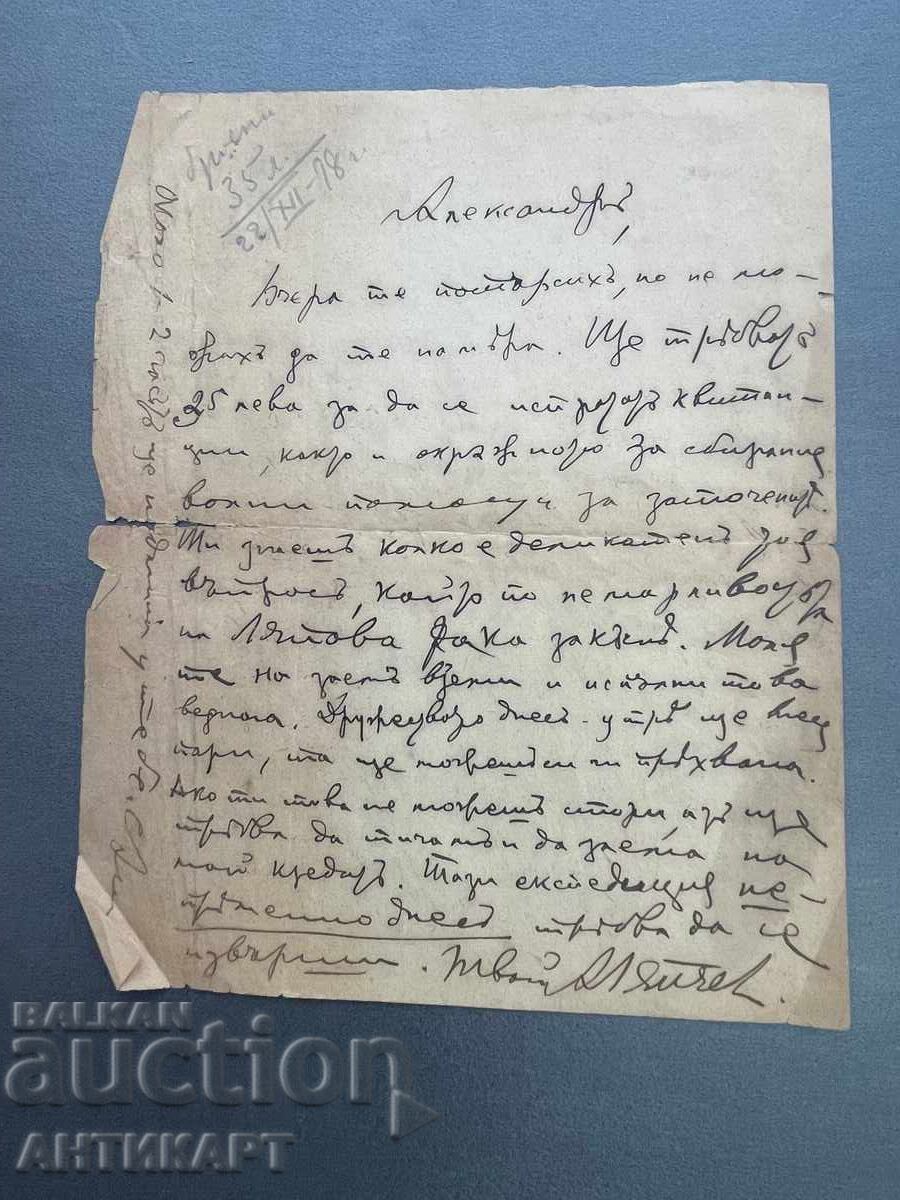 35 л.
22/XII-98 г.
Александръ,
Вчера те потърсихъ, но не мо-
жахъ да те намѣря. Ще трѣбватъ
35 лева за да се изпратятъ квитан-
ции, както и окрѫжното за събирание
волни помощи за заточенитѣ.
Ти знаешъ колко е деликатенъ тоя
въпросъ, който по немарливостьта
на Ляпова закъснѣ. Моля
те на заемъ вземи и испълни това
веднага. Дружеството днесъ-утрѣ ще
пари, та ще можешъ си ги прѣхвана.
Ако ти това не можешъ стори, азъ ще
трѣбва да тичамъ и да заема на
мой кредитъ. Тази експедиция не-
прѣменно днесъ трѣбва да се
извърши. Твой А. Ляпчев.
Около 2 часътъ ще у тебе.
BALKAN
auction
АНТИКАРТ